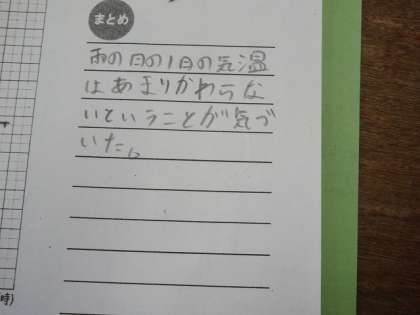 まとめ
雨の日の1日の気温
はあまりかわらな
いということが気づ
いた。
時)